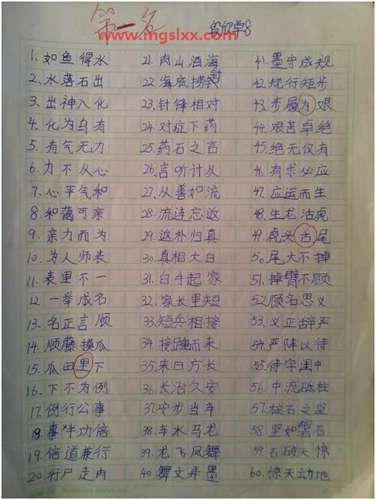 第一名
www.mgslxx.com
1. 如鱼得水
2. 水落石出
3. 出神入化
4. 化为乌有
5. 有气无力
6. 力不从心
7. 心平气和
8. 和蔼可亲
9. 亲力而为
10. 为人师表
11. 表里不一
12. 一举成名
13. 名正言顺
14. 顺藤摸瓜
15. 瓜田里下
16. 下不为例
17. 例行公事
18. 事半功倍
19. 倍道兼行
20. 行尸走肉
21. 肉山酒海
22. 海底捞针
23. 针锋相对
24. 对症下药
25. 药石之言
26. 言听计从
27. 从善如流
28. 流连忘返
29. 返朴归真
30. 真相大白
31. 白手起家
32. 家长里短
33. 短兵相接
34. 接踵而来
35. 来日方长
36. 长治久安
37. 安步当车
38. 车水马龙
39. 龙飞凤舞
40. 舞文弄墨
41. 墨守成规
42. 规行矩步
43. 步履为艰
44. 艰苦卓绝
45. 绝无仅有
46. 有求必应
47. 应运而生
48. 生龙活虎
49. 虎头舌尾
50. 尾大不掉
51. 掉臂不顾
52. 顾名思义
53. 义正辞严
54. 严阵以待
55. 待字闺中
56. 中流砥柱
57. 柱石之坚
58. 坚如磐石
59. 石破天惊
60. 惊天动地